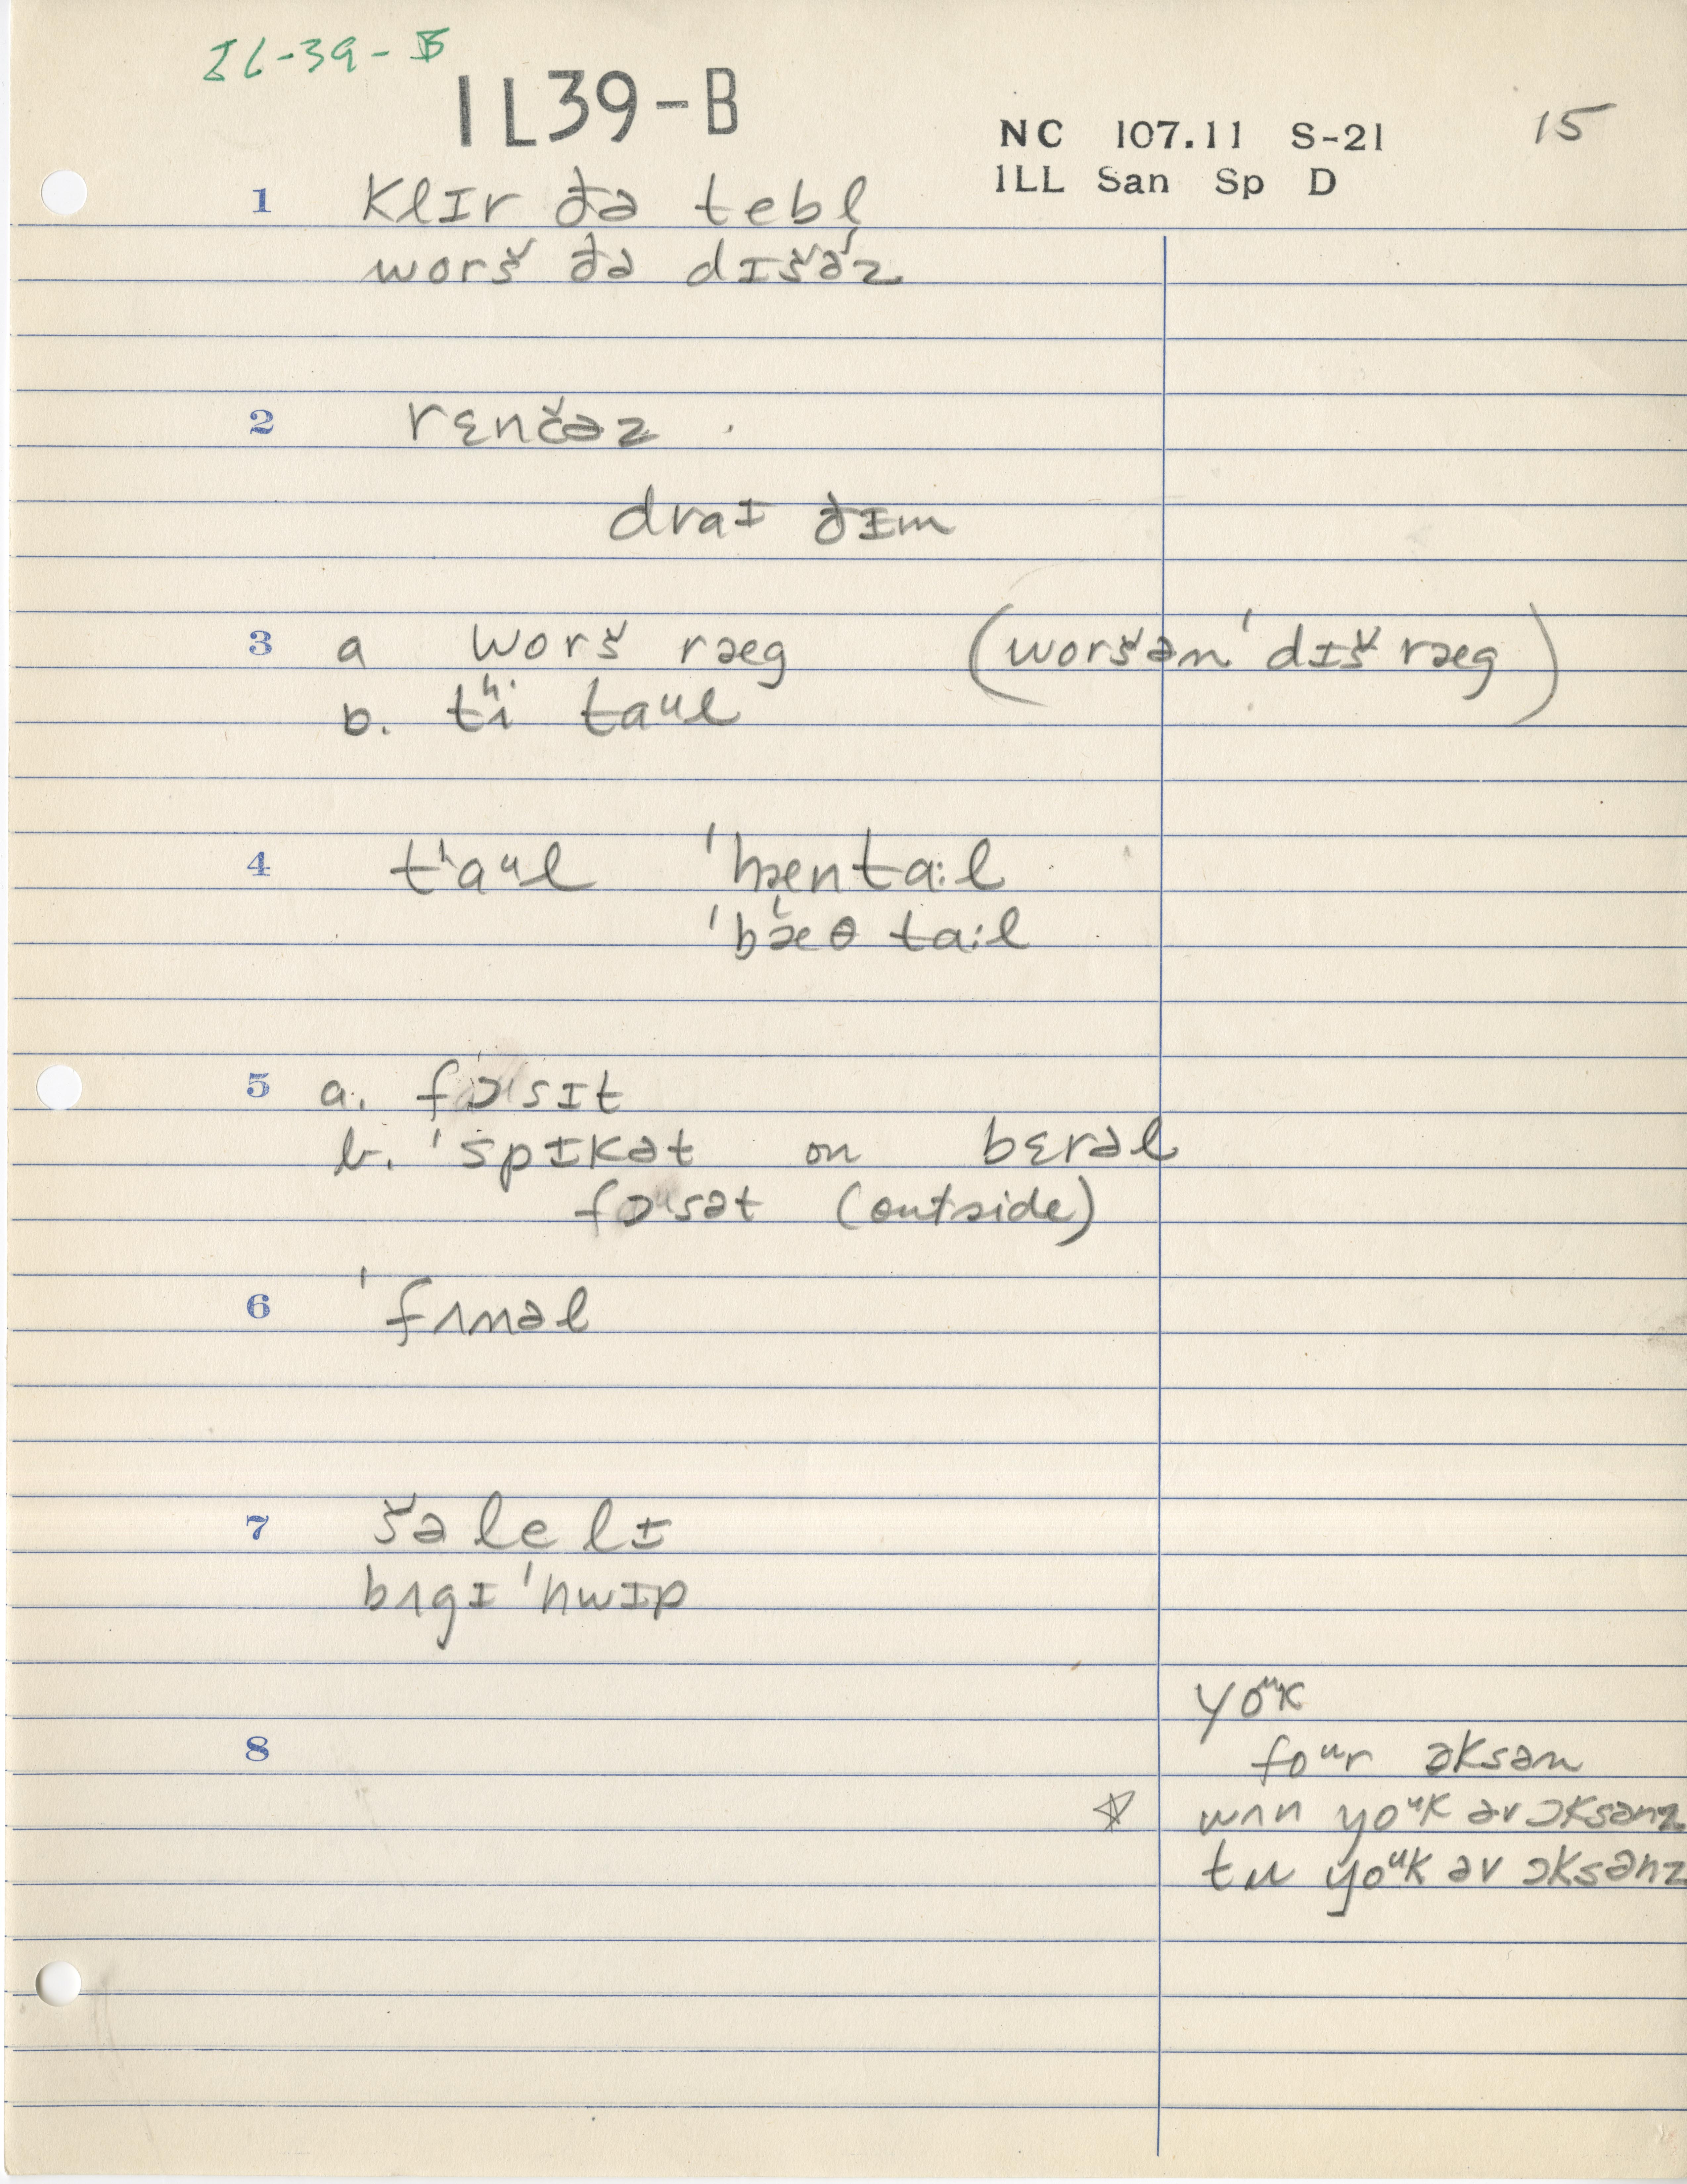 IL-39-B
IL39-B
NC 107.11 S-21
ILL San Sp D
15
1 klɪr ðə tebl̩
worš ðə dɪšəz
2 rɛnčəz
draɪ ðɪm
3 a worš ræg (woršən ˈdɪš ræg)
b. tʰi taᵘl
4 tʰaᵘl ˈhæntaːl
ˈbæθ taːl
5 a. fɔᵘsɪt
b. ˈspɪkət on bɛrəl
fɔᵘsət (outside)
6 ˈfʌnəl
7 šəlelɪ
bʌgɪ ˈhwɪp
8
yoᵘk
foᵘr ɔksən
☆ wʌn yoᵘk əv ɔksənz
tu yoᵘk əv ɔksənz